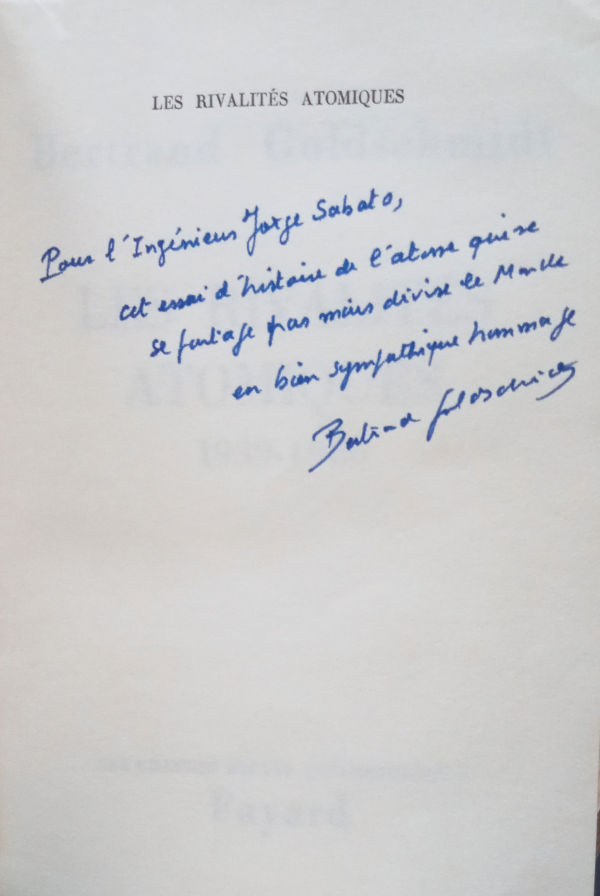 LES RIVALITÉS ATOMIQUES
Pour l'Ingénieur Jorge Sabato,
cet essai d'histoire de l'atome qui se
se partage pas mais divise le Monde
en bien sympathique hommage
Bertrand Goldschmidt
Bertrand Goldschmidt
LES RIVALITÉS
ATOMIQUES
Fayard